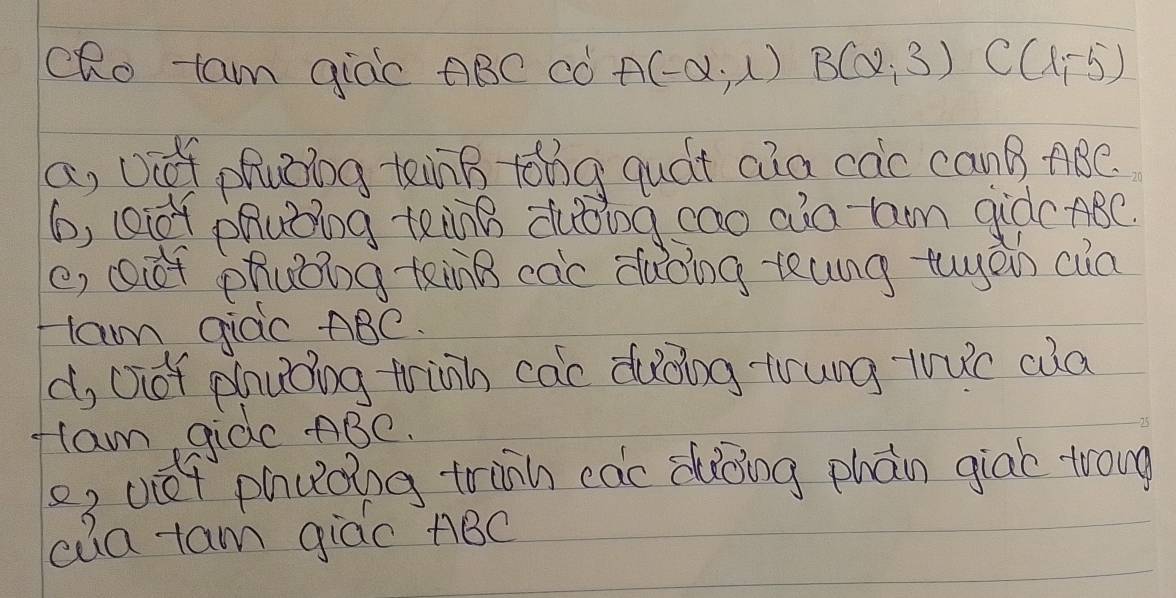 Cho tam giác ABC có A(-2; 1) B(2; 3) C(1; -5)
a, Viết phương trình tổng quát của các cạnh ABC.
b, Viết phương trình đường cao của tam giác ABC.
c, Viết phương trình các đường trung tuyến của
tam giác ABC.
d, Viết phương trình các đường trung trực của
tam giác ABC.
e, viết phương trình các đường phân giác trong
của tam giác ABC